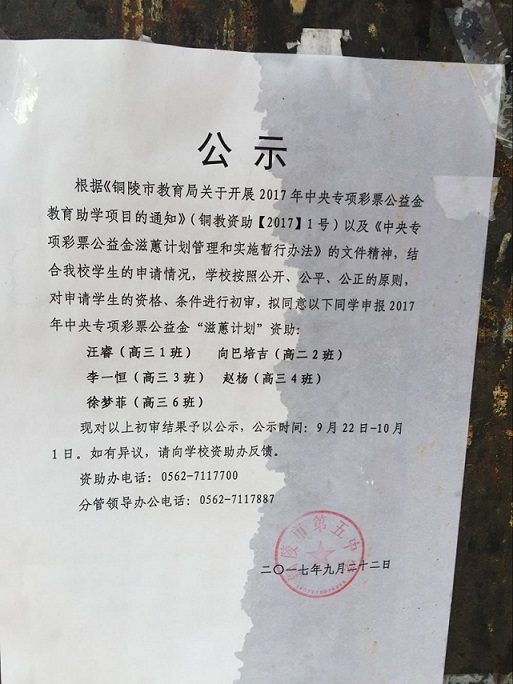 公示
根据《铜陵市教育局关于开展2017年中央专项彩票公益金
教育助学项目的通知》(铜教资助【2017】1号)以及《中央专
项彩票公益金滋蕙计划管理和实施暂行办法》的文件精神，结
合我校学生的申请情况，学校按照公开、公平、公正的原则，
对申请学生的资格、条件进行初审，拟同意以下同学申报2017
年中央专项彩票公益金“滋蕙计划”资助：
汪睿(高三1班) 向巴培吉(高二2班)
李一恒(高三3班) 赵杨(高三4班)
徐梦菲(高三6班)
现对以上初审结果予以公示，公示时间：9月22日-10月
1日。如有异议，请向学校资助办反馈。
资助办电话：0562-7117700
分管领导办公电话：0562-7117887
陵市第五中
二〇一七年九月二十二日